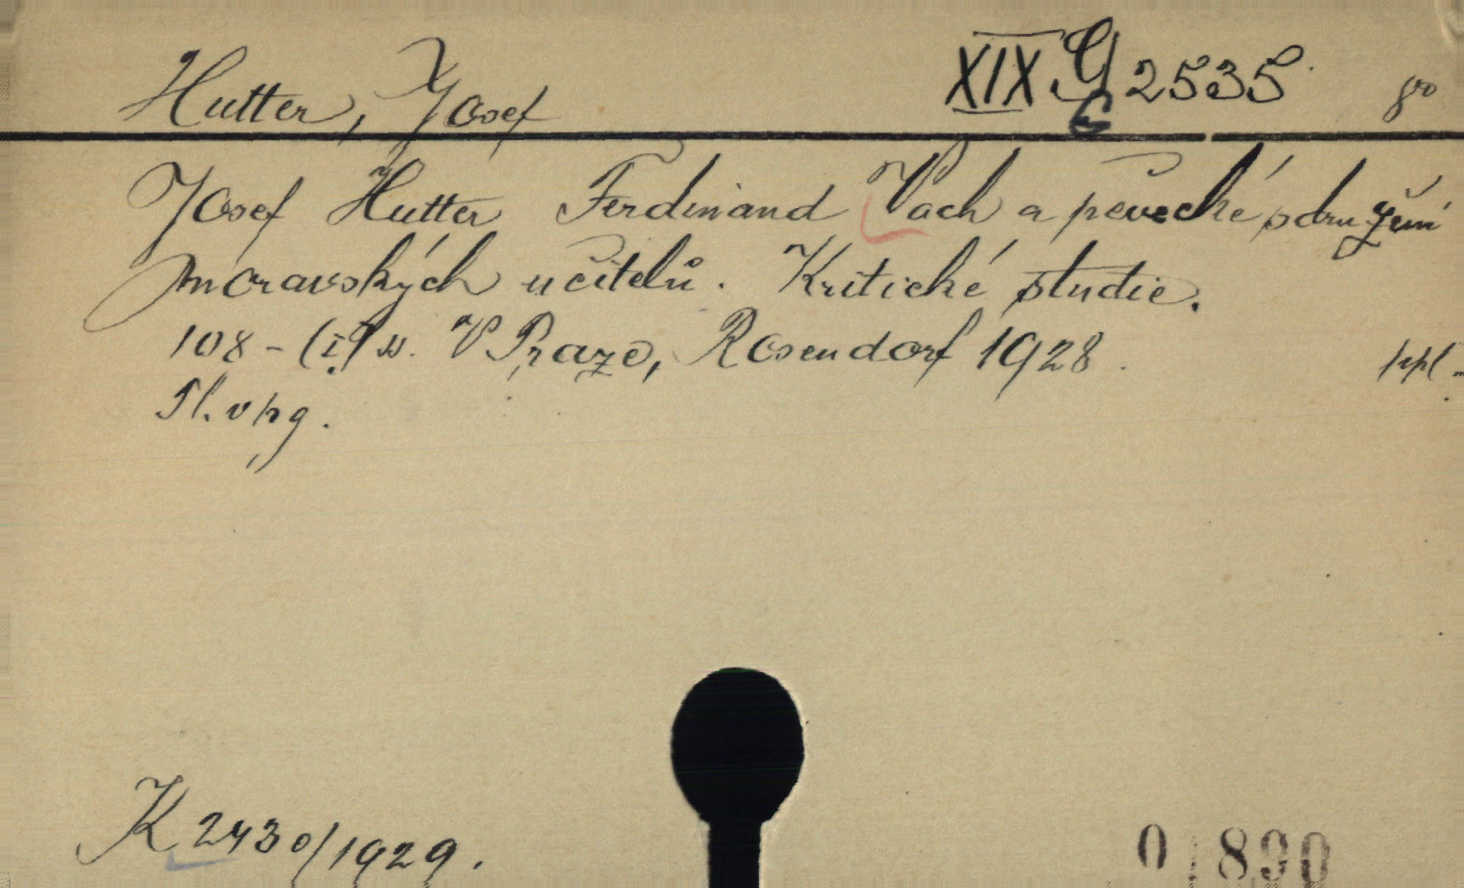 Hutter, Josef XIX G 2535 8vo
Josef Hutter Ferdinand Vach a pěvecké sdružení
moravských učitelů. Kritické studie.
108-(i.) s. V Praze, Rosendorf 1928.
K 2430/1929.